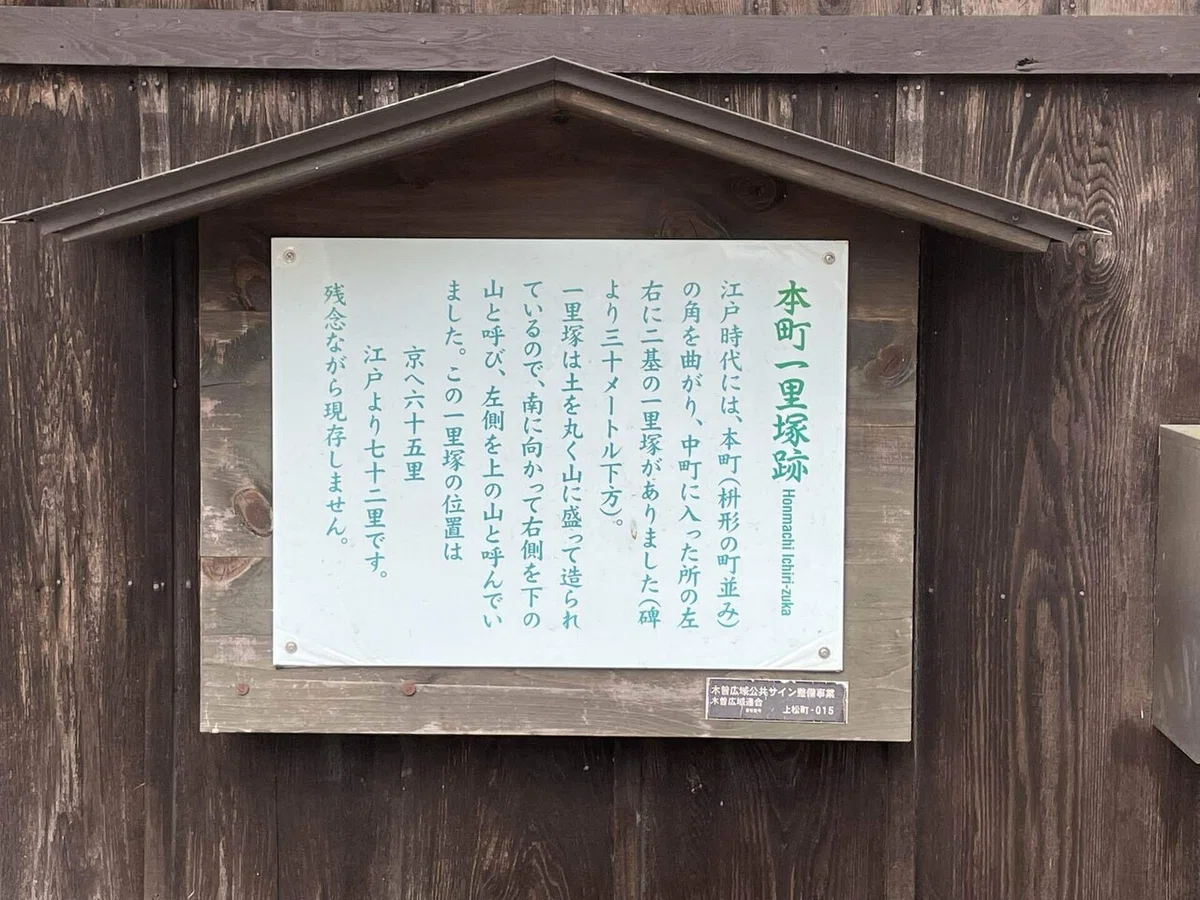 本町一里塚跡 Honmachi Ichiri-zuka
江戸時代には、本町(枡形の町並み)
の角を曲がり、中町に入った所の左
右に二基の一里塚がありました(碑
より三十メートル下方)。
一里塚は土を丸く山に盛って造られ
ているので、南に向かって右側を下の
山と呼び、左側を上の山と呼んでい
ました。この一里塚の位置は
京へ六十五里
江戸より七十二里です。
残念ながら現存しません。
木曽広域公共サイン整備事業
木曽広域連合
上松町-015